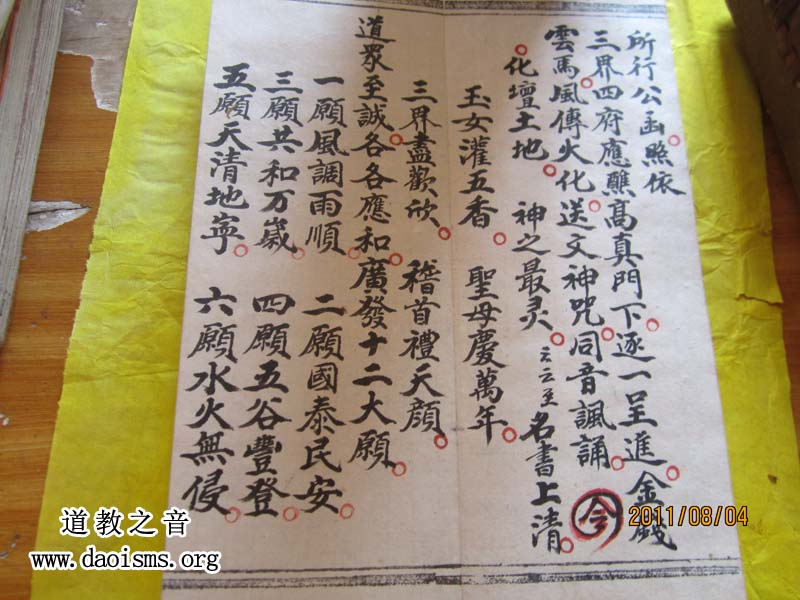 所行公函照依
三界四府應醮高真門下逐一呈進金錢
雲馬風傳火化送文神咒同音諷誦
化壇土地 神之最灵 云云至 名書上清
今
玉女灌五香 聖母慶萬年
三界盡歡欣 稽首禮天顏
道眾至誠各各應和廣發十二大願
一願風調雨順 二願國泰民安
三願共和万嵗 四願五谷豐登
五願天清地寧 六願水火無侵
2011/08/04
道教之音
www.daoisms.org